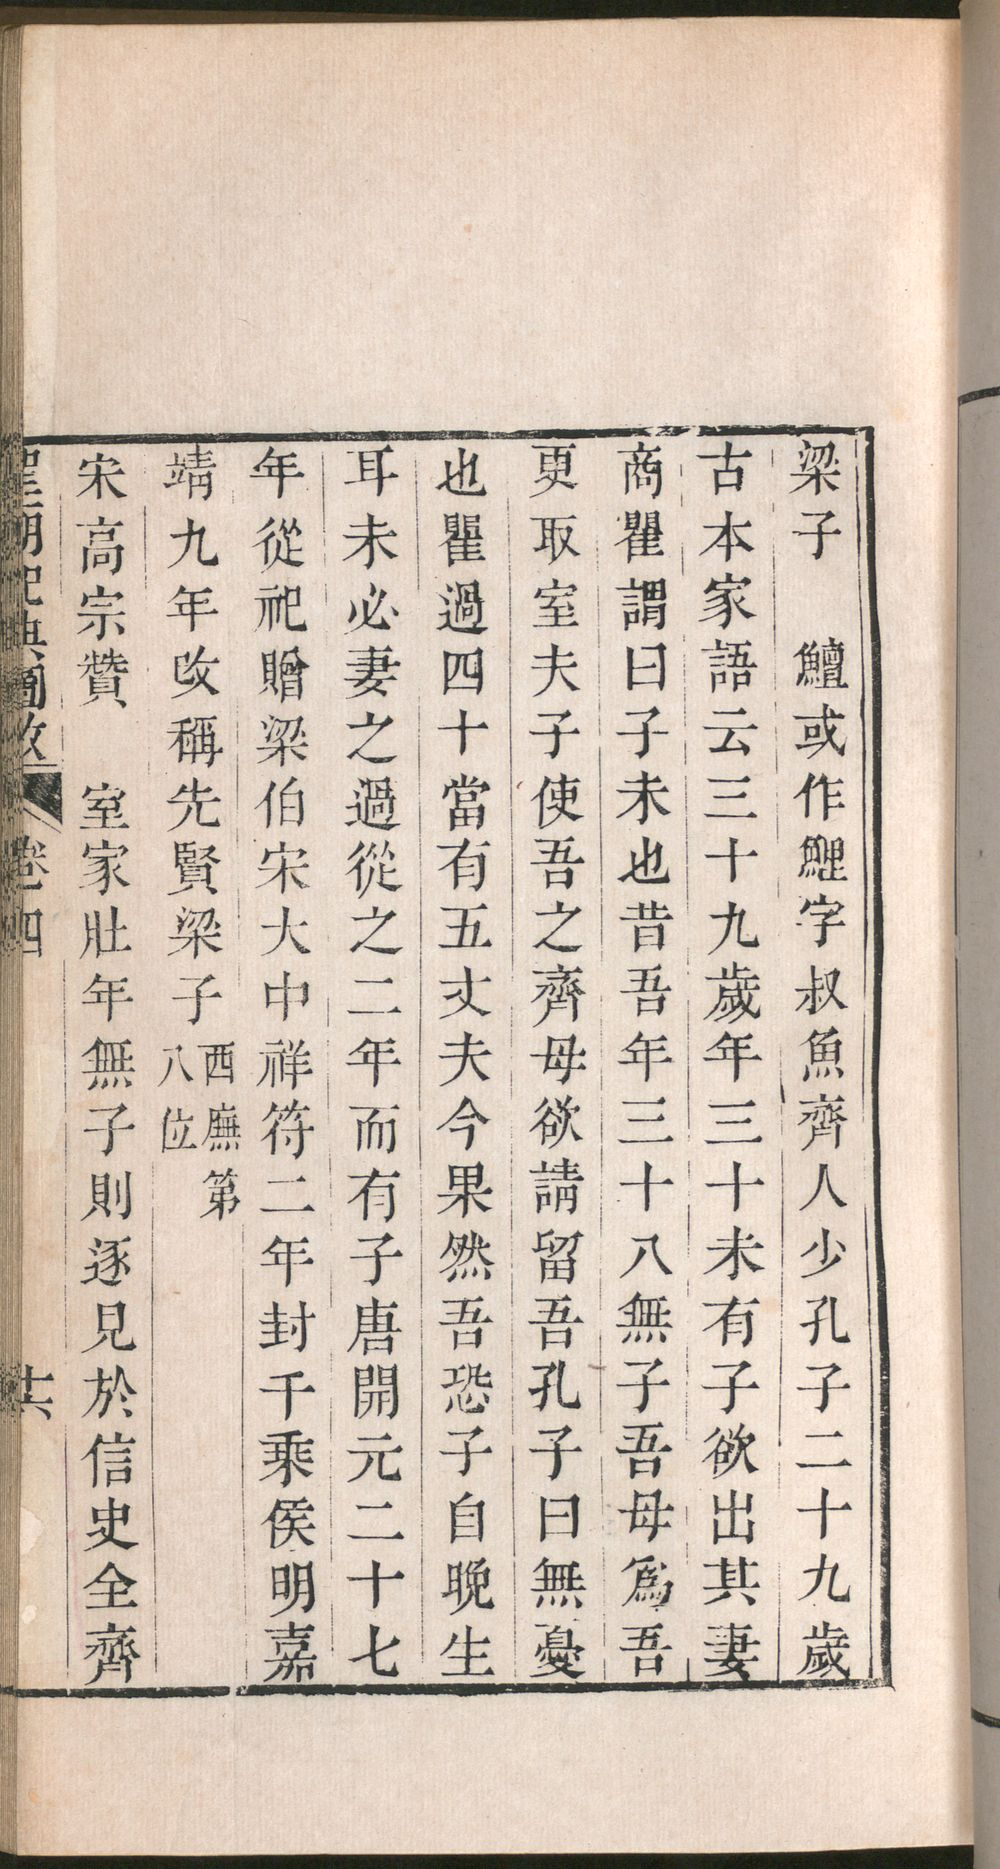 梁子　鱣或作鯉字叔魚齊人少孔子二十九歲
古本家語云三十九歲年三十未有子欲出其妻
商瞿謂曰子未也昔吾年三十八無子吾母爲吾
更取室夫子使吾之齊母欲請留吾孔子曰無憂
也瞿過四十當有五丈夫今果然吾恐子自晚生
耳未必妻之過從之二年而有子唐開元二十七
年從祀贈梁伯宋大中祥符二年封千乘侯明嘉
靖九年改稱先賢梁子西廡第
八位
宋高宗贊　室家壯年無子則逐見於信史全齊
聖廟祀典圖攷　卷四　十六